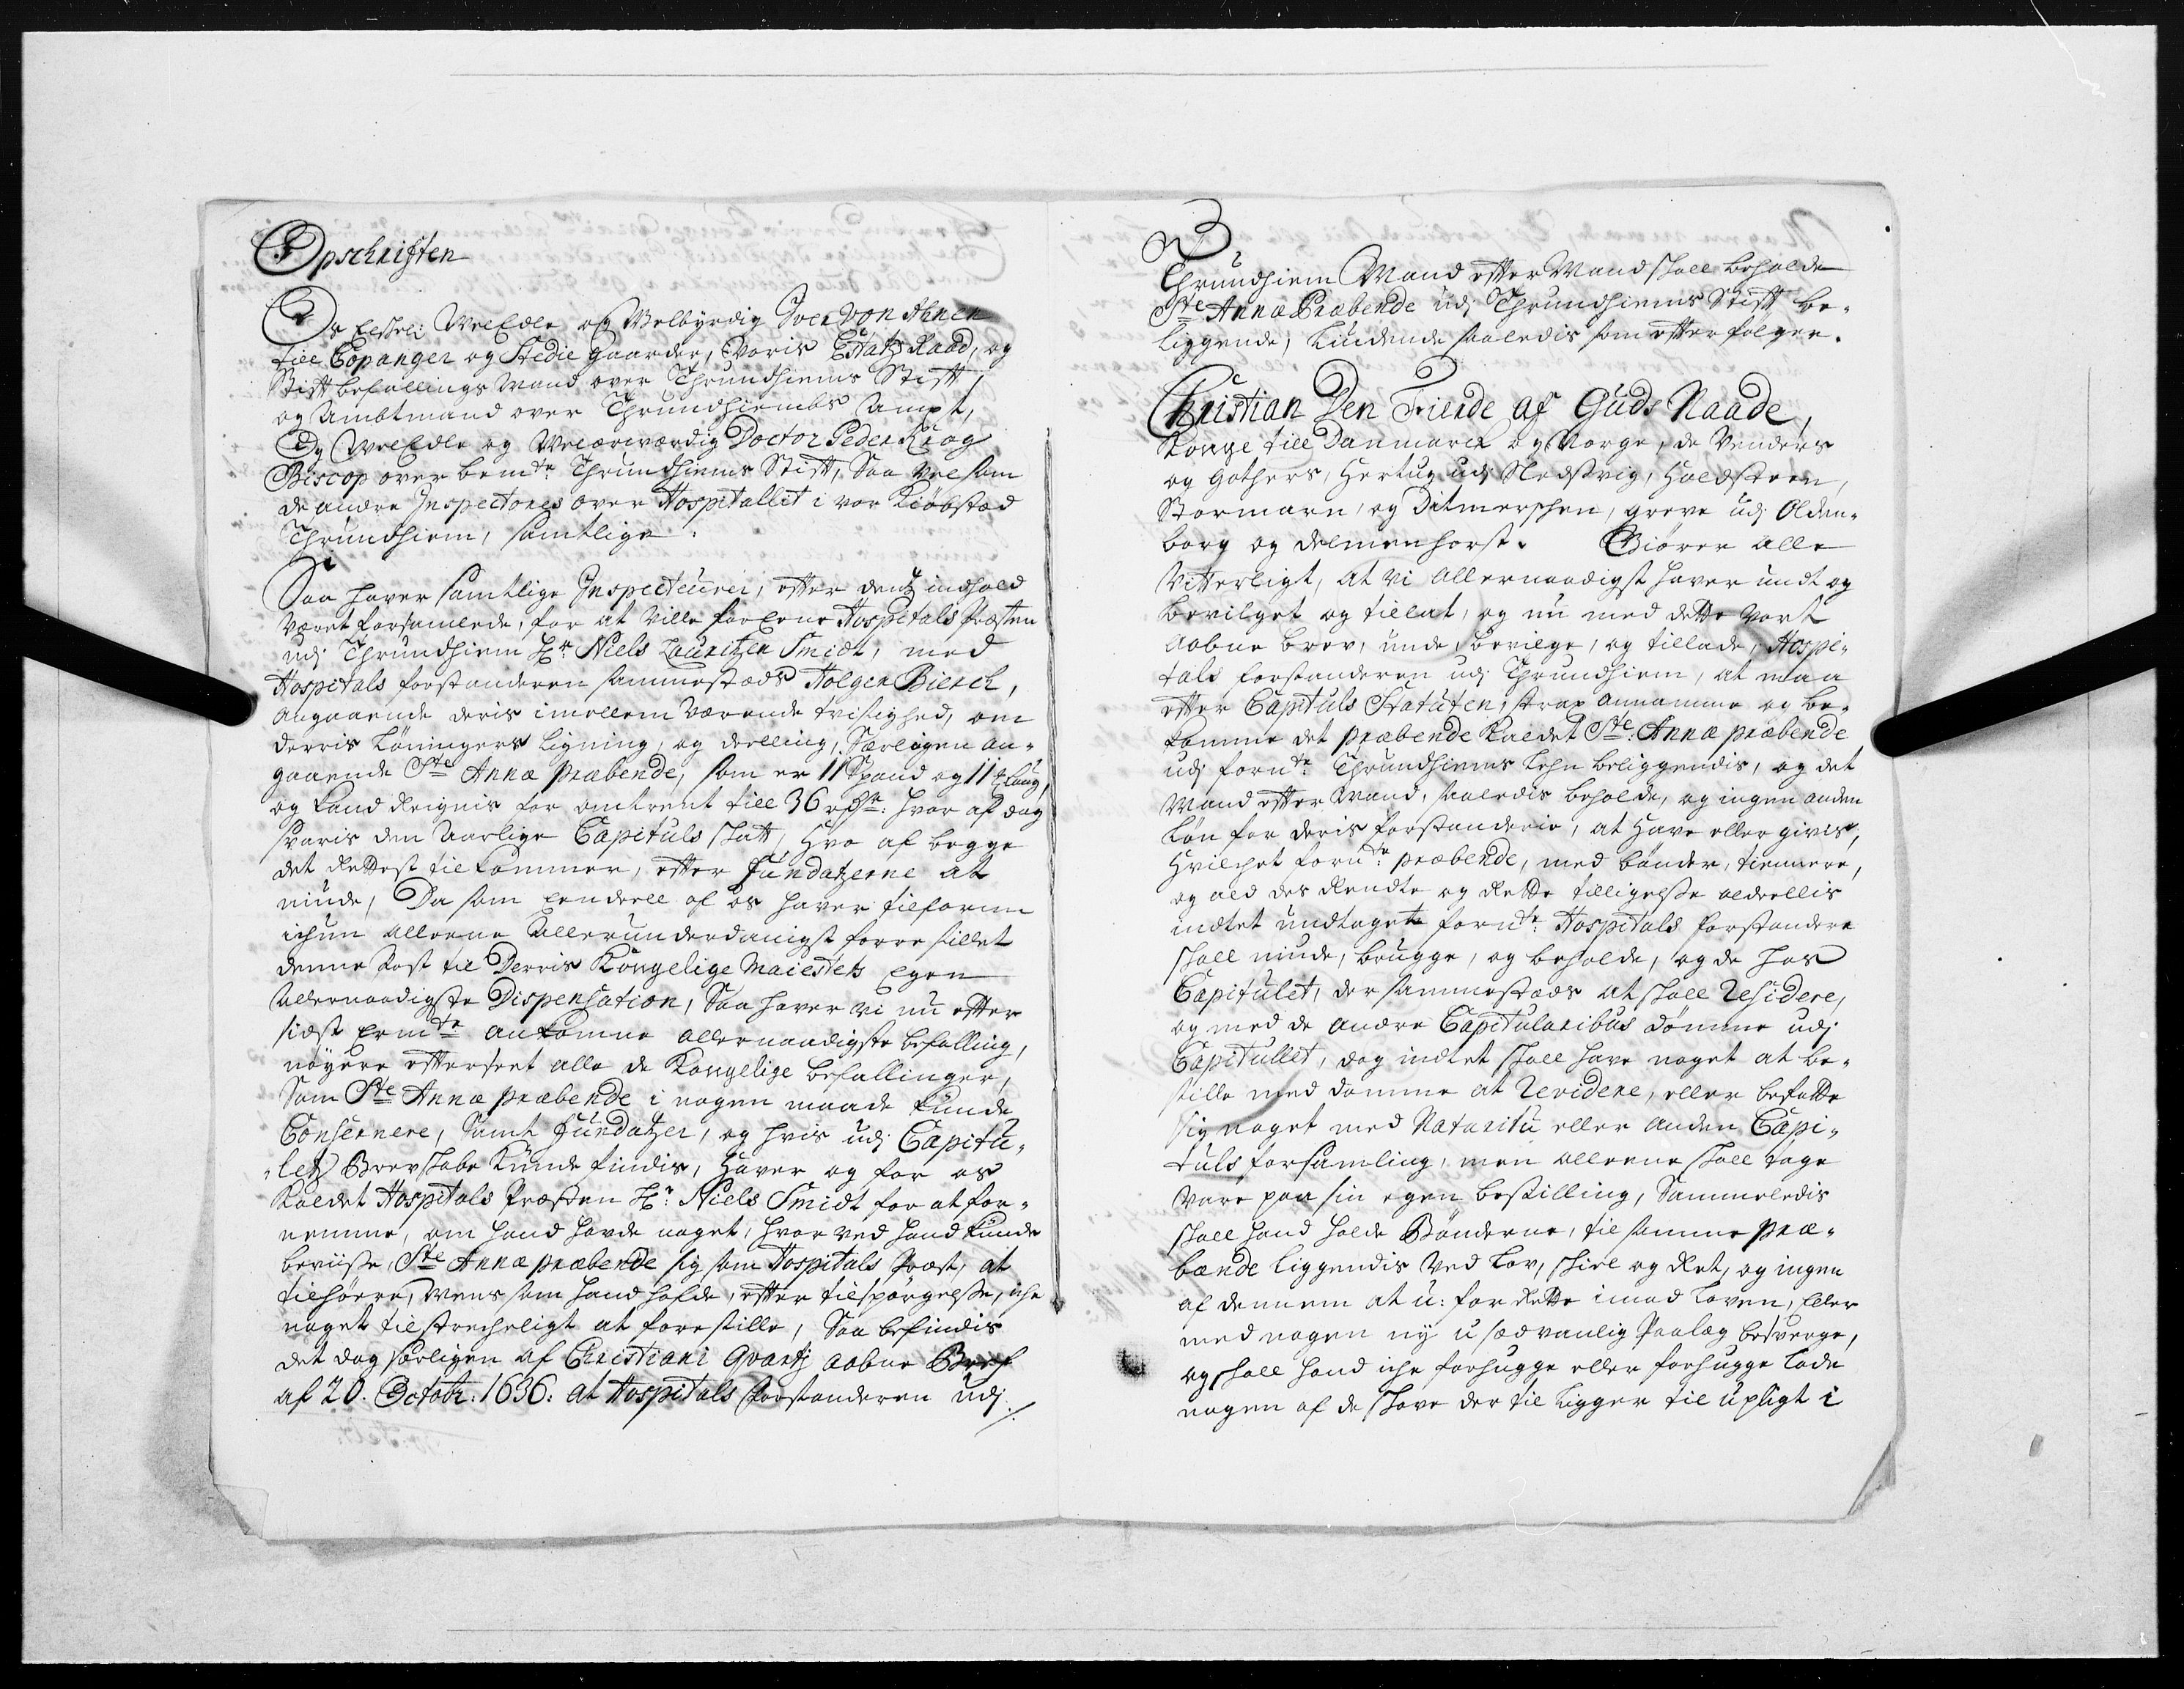 Opschriften
Os Elskel: Vel Edle og Velbyrdig Iver von Ahnen
till Copanger og Stedie gaarder, Voris Etatz Raad, og
Stiftbefallings Mand over Thrundhiems Stift,
og Ambtmand over Thrundhiembs Ampt,
Og Vel Edle og Velærværdig Doctor Peder Krog
Biscop over bemte Thrundhiems Stift, Saa vel som
de andre Inspectores over Hospitallet i vor Kiøbstæd
Thrundhiem, samtlige.
Saa haver samtlige Inspecteurer, efter dentz indhold
været forsamlede, for at ville foreene Hospitals Præsten
udj Thrundhiem Hr. Niels Lauritzen Smidt, med
Hospitals forstanderen sammestæds Holger Bierch,
angaaende deris imellem værende tvistighed, om
derris Løningers ligning, og deelling, Særligen an¬
gaaende Ste Annæ Præbende, som er 11 Spand og 11 1/2 laug,
og kand Reignis for omtrent till 36 rdlr: hvor af dog
svaris den Aarlige Capituls skatt, hvo af begge
det Rettest tilkommer, efter Fundatzerne at
niude, Da som Eendeell af os haver tilforne
ichun alleene Allerunderdanigst forre stillet
denne Post til Derris Kongelige Maiestets Egen
Allernaadigste Dispensation, Saa haver vi nu efter
sidst Ermte ankomne allernaadigste befalling,
nøyere efterseet alle de Kongelige befallinger,
Som Ste Annæ præbende i nogen maade kunde
Consernere, Samt Fundatzer, og hvis udj Capitu¬
letz Brevskabe kunde findis, haver og for os
Kaldet Hospitals Præsten Hr: Niels Smidt for at for¬
nemme, om hand havde noget, hvor ved hand kunde
beviise, Ste Annæ præbende sig som Hospitals Præst, at
tilhøre, Mens som hand hafde, efter tilspørgelse, iche
noget tilstrecheligt at forestille, Saa befindis
det dog særligen af Christiani Qvartj aabne Bref
af 20. Octobr: 1636: at Hospitals forstanderen udj
Thrundhiem Mand efter Mand skall beholde
Ste Annæ Præbende udj Thrundhiems Stift be¬
liggende, Liudende saaledis som efterfølger.
Christian Den Fierde af Guds Naade,
Konge till Danmarck og Norge, de Venders
og Gothers, Hertug udj Sledsvig, Holdsteen,
Stormarn, og Ditmerschen, greve udj Olden¬
borg og Delmenhorst. Giører alle
Vitterligt, at vi Allernaadigst haver undt og
bevilget og tillat, og nu med dette vort
aabne brev, unde, bevilge, og tillade, Hospi¬
tals forstanderen udj Thrundhiem, at maa
efter Capituls Statuten, strax annamme og be¬
komme det præbende Kaldet Ste: Annæ præbende
udj fornte Thrundhiems Lehn beliggendis, og det
Mand efter Mand, saaledis beholde, og ingen anden
Løn for deris forstanderie, at have eller givis,
Hvilchet fornte: præbende, med bønder, tiennere,
og ald des Rendte og Rette tilligelse aldellis
indtet undtaget fornte: Hospitals forstandere
skall niude, brugge, og beholde, og de hos
Capitulet, der sammestæds at skall Residere,
og med de andre Capitularibus dømme udj
Capitullet, dog indtet skall have noget at be¬
stille med domme at Revidere, eller befatte
sig noget med Naturitu eller anden Capi¬
tuls forsamling, men alleene skall tage
vare paa sin egen bestilling, Sammeledis
skall hand holde Bønderne, til samme Præ¬
bænde liggendis ved Lov, skiel og Ret, og ingen
af dennem at u: forrette imod Loven, Eller
med nogen ny usædvanlig Paalæg besverge,
og skall hand iche forhugge eller forhugge lade
nogen af de skove der til ligger til upligt i